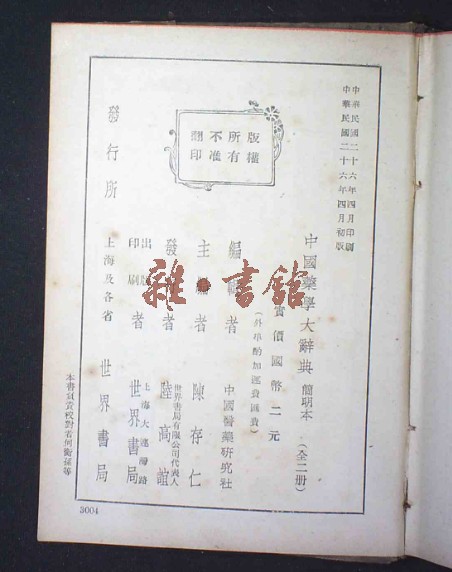 中華民國二十六年四月印刷
中華民國二十六年四月初版
中國藥學大辭典 簡明本 (全二册)
實價國幣二元
(外埠酌加運費匯費)
編輯者 中國醫藥研究社
主編者 陳存仁
發行者 世界書局有限公司代表人 陸高誼
出版印刷者 上海大連灣路 世界書局
發行所 上海及各省 世界書局
版權所有
不准翻印
本書負責校對者何衡孫等
3004
雜·書館